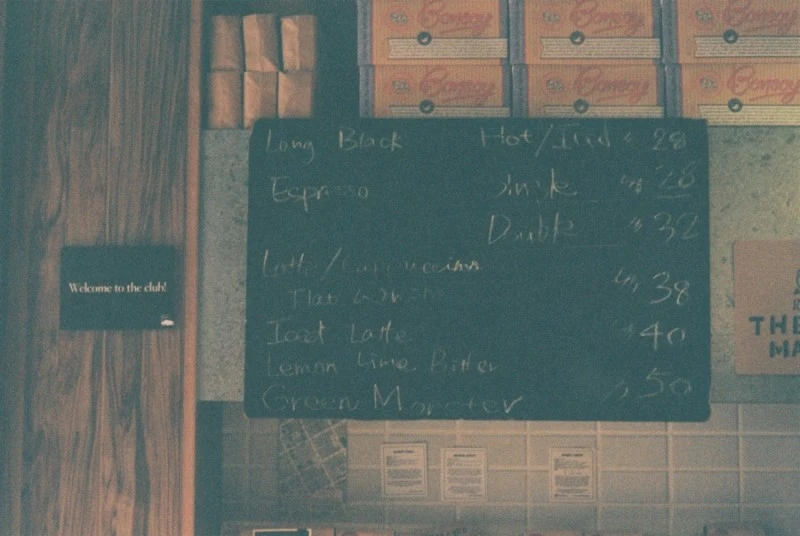 Bonsoy Bonsoy Bonsoy
Bonsoy Bonsoy Bonsoy
Long Black Hot/Iced $ 28
Espresso Single $ 28
Double $ 32
Latte/Cappuccino
Flat White $ 38
Iced Latte $ 40
Lemon Lime Bitter
Green Monster $ 50
Welcome to the club!